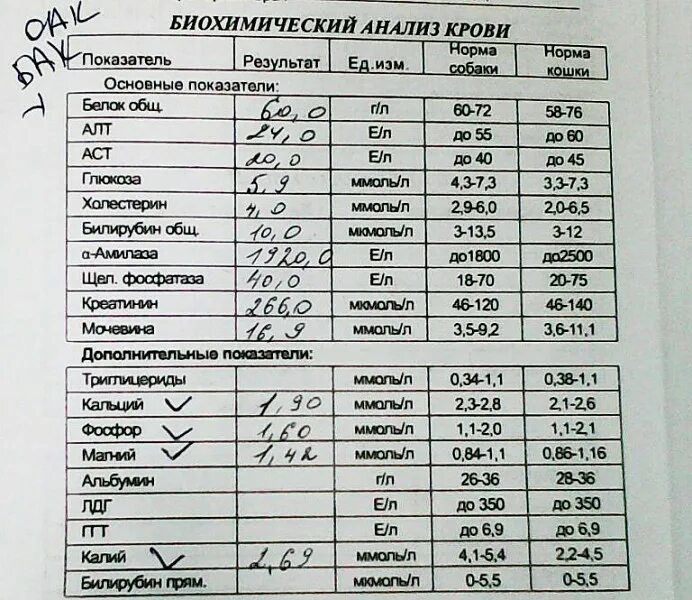 ОАК
БАК
БИОХИМИЧЕСКИЙ АНАЛИЗ КРОВИ
Показатель Результат Ед.изм. Норма собаки Норма кошки
Основные показатели:
Белок общ. 60,0 г/л 60-72 58-76
АЛТ 24,0 Е/л до 55 до 60
АСТ 20,0 Е/л до 40 до 45
Глюкоза 5,9 ммоль/л 4,3-7,3 3,3-7,3
Холестерин 4,0 ммоль/л 2,9-6,0 2,0-6,5
Билирубин общ. 10,0 мкмоль/л 3-13,5 3-12
α-Амилаза 1920,0 Е/л до1800 до2500
Щел. фосфатаза 40,0 Е/л 18-70 20-75
Креатинин 266,0 мкмоль/л 46-120 46-140
Мочевина 16,9 ммоль/л 3,5-9,2 3,6-11,1
Дополнительные показатели:
Триглицериды ммоль/л 0,34-1,1 0,38-1,1
Кальций 1,90 ммоль/л 2,3-2,8 2,1-2,6
Фосфор 1,60 ммоль/л 1,1-2,0 1,1-2,1
Магний 1,42 ммоль/л 0,84-1,1 0,86-1,16
Альбумин г/л 26-36 28-36
ЛДГ Е/л до 350 до 350
ГГТ Е/л до 6,9 до 6,9
Калий 2,69 ммоль/л 4,1-5,4 2,2-4,5
Билирубин прям. мкмоль/л 0-5,5 0-5,5